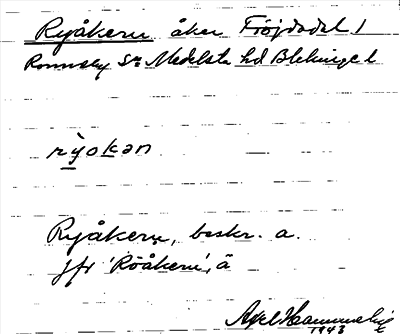 Ryåkern åker Fröjdadal 1
Ronneby Sn Medelsta hd Blekinge l
rỳokan
Ryåkern, beskr. a.
jfr 'Röåkern', ä
Axel
1943